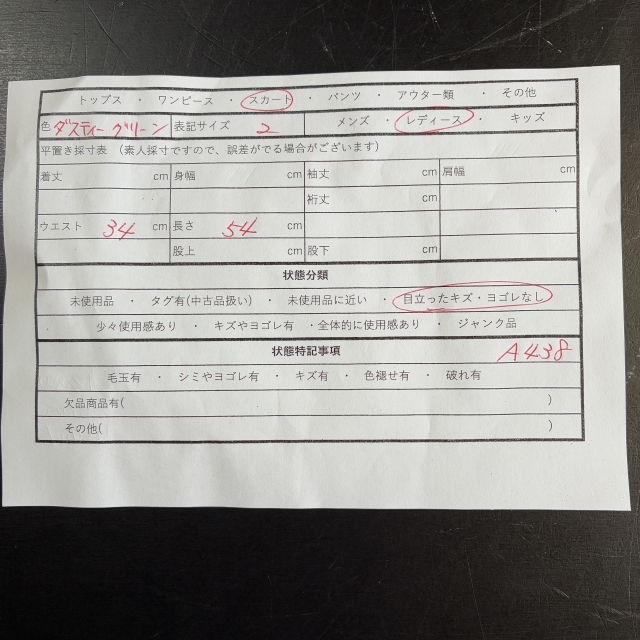 トップス ・ ワンピース ・ スカート ・ パンツ ・ アウター類 ・ その他
色 ダスティーグリーン 表記サイズ 2 メンズ ・ レディース ・ キッズ
平置き採寸表 (素人採寸ですので、誤差がでる場合がございます)
着丈 cm 身幅 cm 袖丈 cm 肩幅 cm
裄丈 cm
ウエスト 34 cm 長さ 54 cm
股上 cm 股下 cm
状態分類
未使用品 ・ タグ有(中古品扱い) ・ 未使用品に近い ・ 目立ったキズ・ヨゴレなし
少々使用感あり ・ キズやヨゴレ有 ・全体的に使用感あり ・ ジャンク品
状態特記事項 A438
毛玉有 ・ シミやヨゴレ有 ・ キズ有 ・ 色褪せ有 ・ 破れ有
欠品商品有( )
その他( )